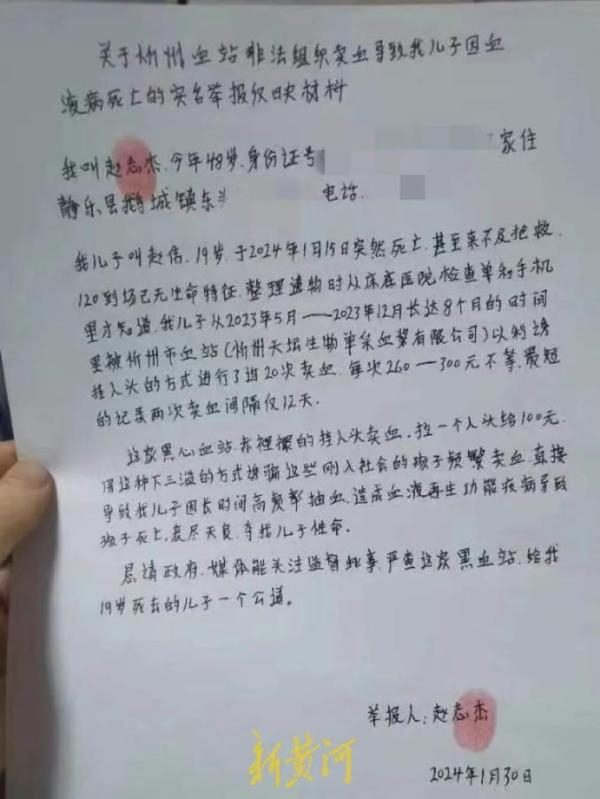 关于忻州血站非法组织卖血导致我儿子因血
液病死亡的实名举报反映材料
我叫赵志杰.今年48岁.身份证号 家住
静乐县鹅城镇东 电话
我儿子叫赵伟.19岁.于2024年1月15日突然死亡.甚至来不及抢救.
120到场已无生命特征.整理遗物时从床底医院检查单和手机
里才知道.我儿子从2023年5月——2023年12月长达8个月的时间
里被忻州市血站(忻州天坛生物单采血浆有限公司)以利诱
挂人头的方式进行了近20次卖血.每次260—300元不等.最短
的记录两次卖血间隔仅12天.
这家黑心血站.赤裸裸的挂人头卖血.拉一个人头给100元.
用这种下三滥的方式诱骗这些刚入社会的孩子频繁卖血.直接
导致我儿子因长时间高复率抽血.造成血液再生功能疾病导致
孩子死亡.丧尽天良.夺我儿子性命.
恳请政府.媒体能关注监督此事.严查这家黑血站.给我
19岁死去的儿子一个公道。
举报人:赵志杰
新黄河
2024年1月30日